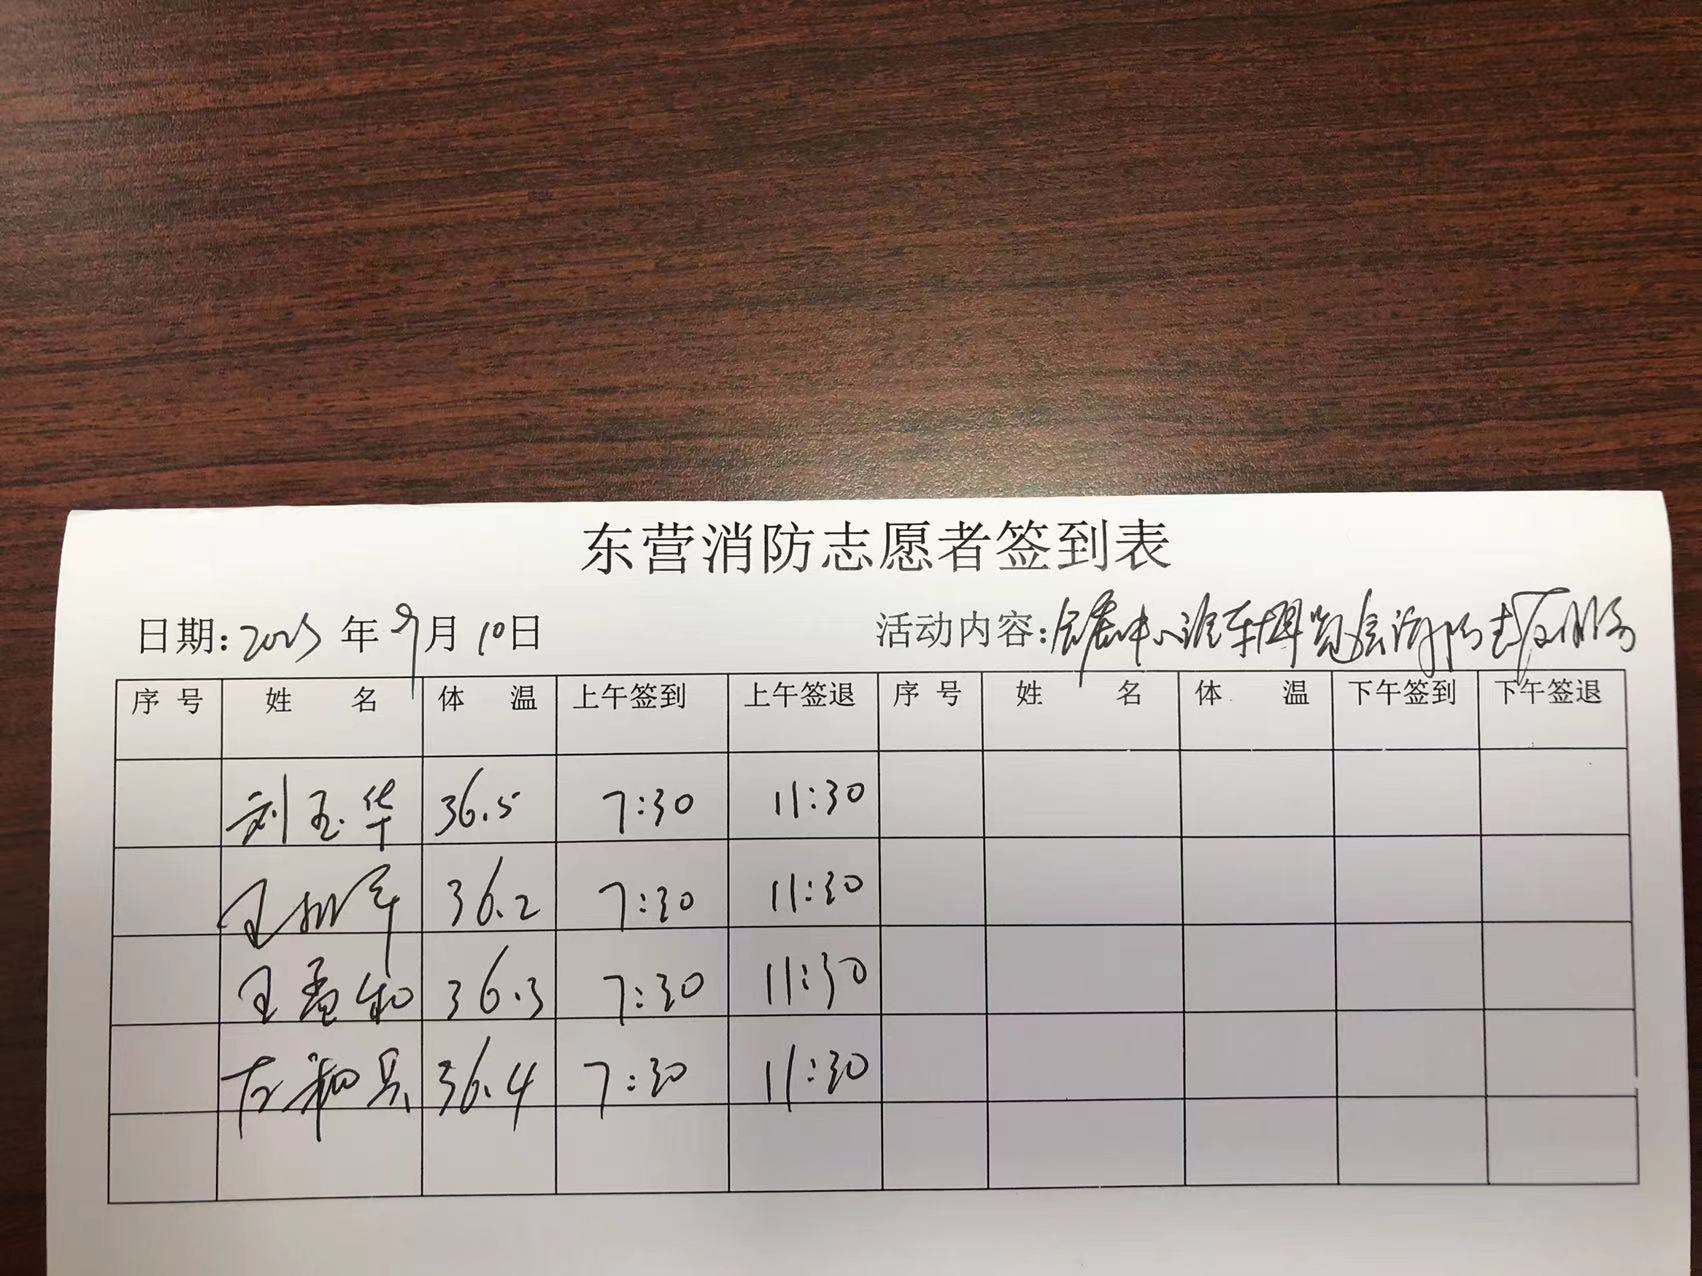 东营消防志愿者签到表
日期:2023年9月10日 活动内容:会展中心汽车博览会消防志愿服务
序号 姓名 体温 上午签到 上午签退 序号 姓名 体温 下午签到 下午签退
刘玉华 36.5 7:30 11:30
王 军 36.2 7:30 11:30
王孟和 36.3 7:30 11:30
36.4 7:30 11:30